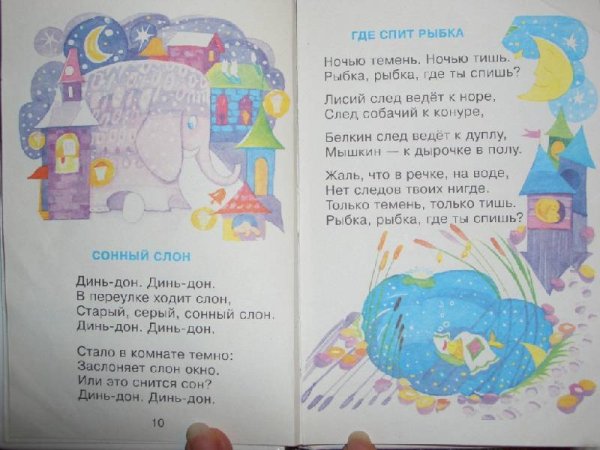 СОННЫЙ СЛОН
Динь-дон. Динь-дон.
В переулке ходит слон,
Старый, серый, сонный слон.
Динь-дон. Динь-дон.
Стало в комнате темно:
Заслоняет слон окно.
Или это снится сон?
Динь-дон. Динь-дон.
10
ГДЕ СПИТ РЫБКА
Ночью темень. Ночью тишь.
Рыбка, рыбка, где ты спишь?
Лисий след ведёт к норе,
След собачий к конуре,
Белкин след ведёт к дуплу,
Мышкин — к дырочке в полу.
Жаль, что в речке, на воде,
Нет следов твоих нигде.
Только темень, только тишь.
Рыбка, рыбка, где ты спишь?